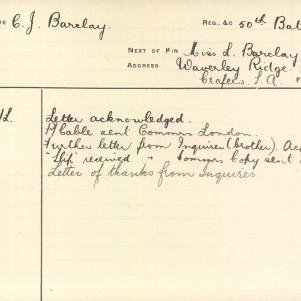 C. J. Barclay. REG. &C 50th Bat
NEXT OF KIN Miss L. Barclay
ADDRESS Waverley Ridge.
Crafers. S.A.
Letter acknowledged.
Cable sent Commrs London.
Further letter from Inquirer (brother).
"Slip" received " Commrs Copy sent
Letter of thanks from Inquirer